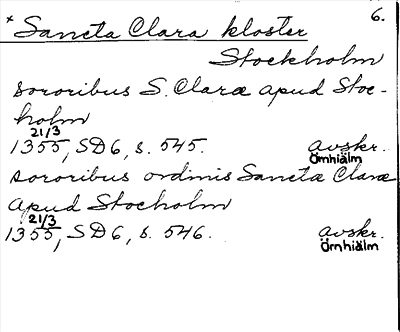 6.
* Sancta Clara kloster
Stockholm
sororibus S. Claræ apud Stoc-
holm
21/3
1355, SD6, s. 545. avskr.
Örnhiälm
sororibus ordinis Sanctæ Claræ
apud Stocholm
21/3
1355, SD6, s. 546. avskr.
Örnhiälm